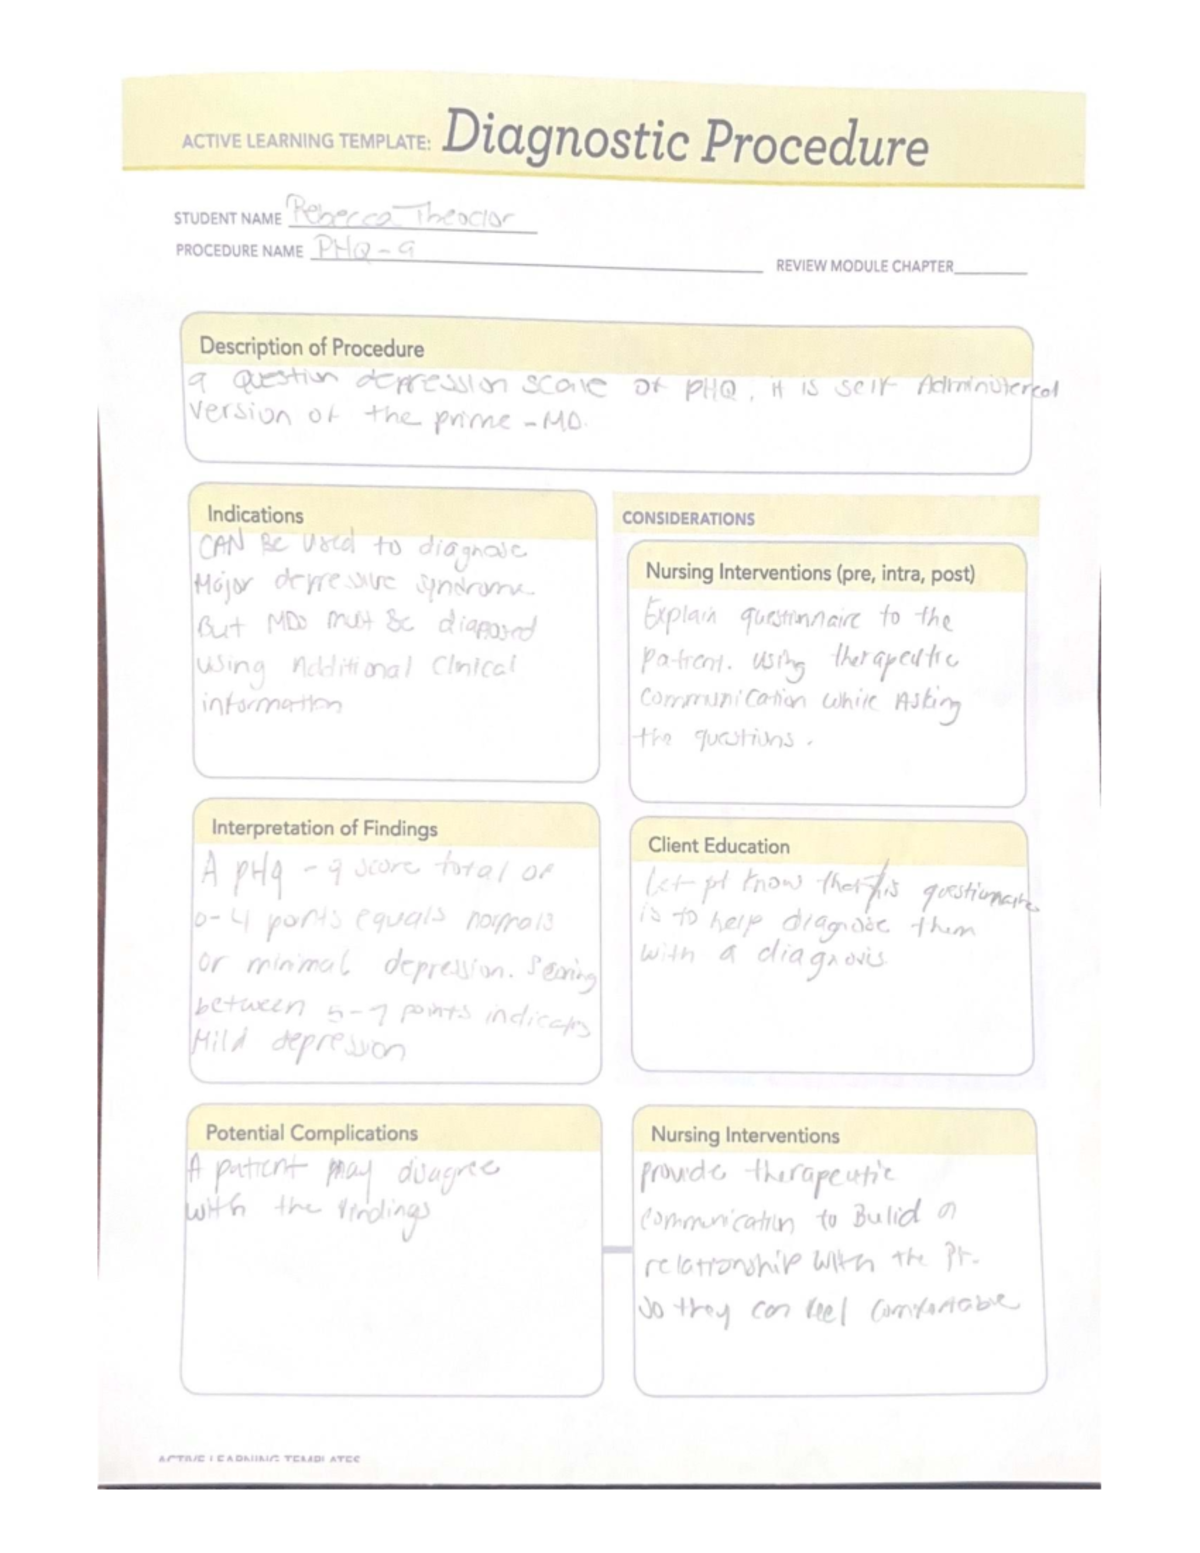 ACTIVE LEARNING TEMPLATE: Diagnostic Procedure
STUDENT NAME Rebecca Theodor
PROCEDURE NAME PHQ-9
REVIEW MODULE CHAPTER
Description of Procedure
9 Question depression scale of PHQ, it is self Administered
version of the prime - MD.
Indications
CAN Be used to diagnose
Major depressive syndrome.
But MDs must Be diagnosed
using Additional Clinical
information
CONSIDERATIONS
Nursing Interventions (pre, intra, post)
Explain questionnaire to the
patient. using therapeutic
communication while Asking
the questions.
Interpretation of Findings
A pHq - 9 score total of
0-4 points equals normals
or minimal depression. Scoring
between 5-9 points indicates
Mild depression
Client Education
let pt know that this questionnaire
is to help diagnose them
with a diagnosis
Potential Complications
A patient may disagree
with the findings
Nursing Interventions
provide therapeutic
communication to Bulid a
relationship with the Pt.
so they can feel comfortable
ACTIVE LEARNING TEMPLATES